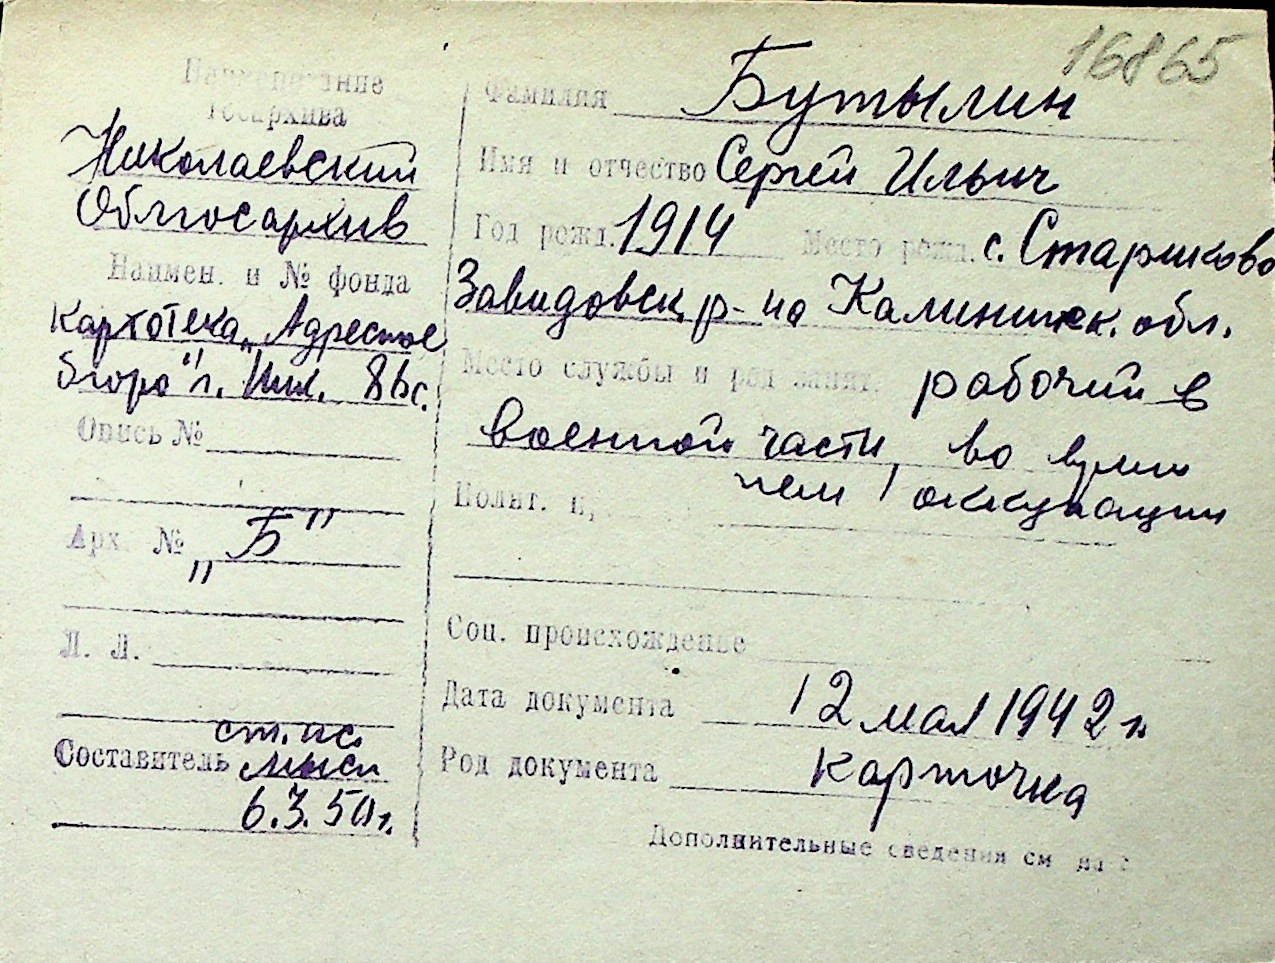 16865
Наименование
госархива
Николаевский
Облгосархив
Наимен. и № фонда
Картотека „Адресное
бюро" г. Ник. 8 вс.
Опись №
Арх. № „Б"
Л. Л.
Составитель ст. нс.
6.3.50 г.
Фамилия Бутылин
Имя и отчество Сергей Ильич
Год рожд. 1914 Место рожд. с. Стариково
Завидовск. р-на Калининск. обл.
Место службы и род занят. рабочий в
военной части, во время
нем. оккупации
Полит. п,
Соц. происхожденье
Дата документа 12 мая 1942 г.
Род документа карточка
Дополнительные сведения см на